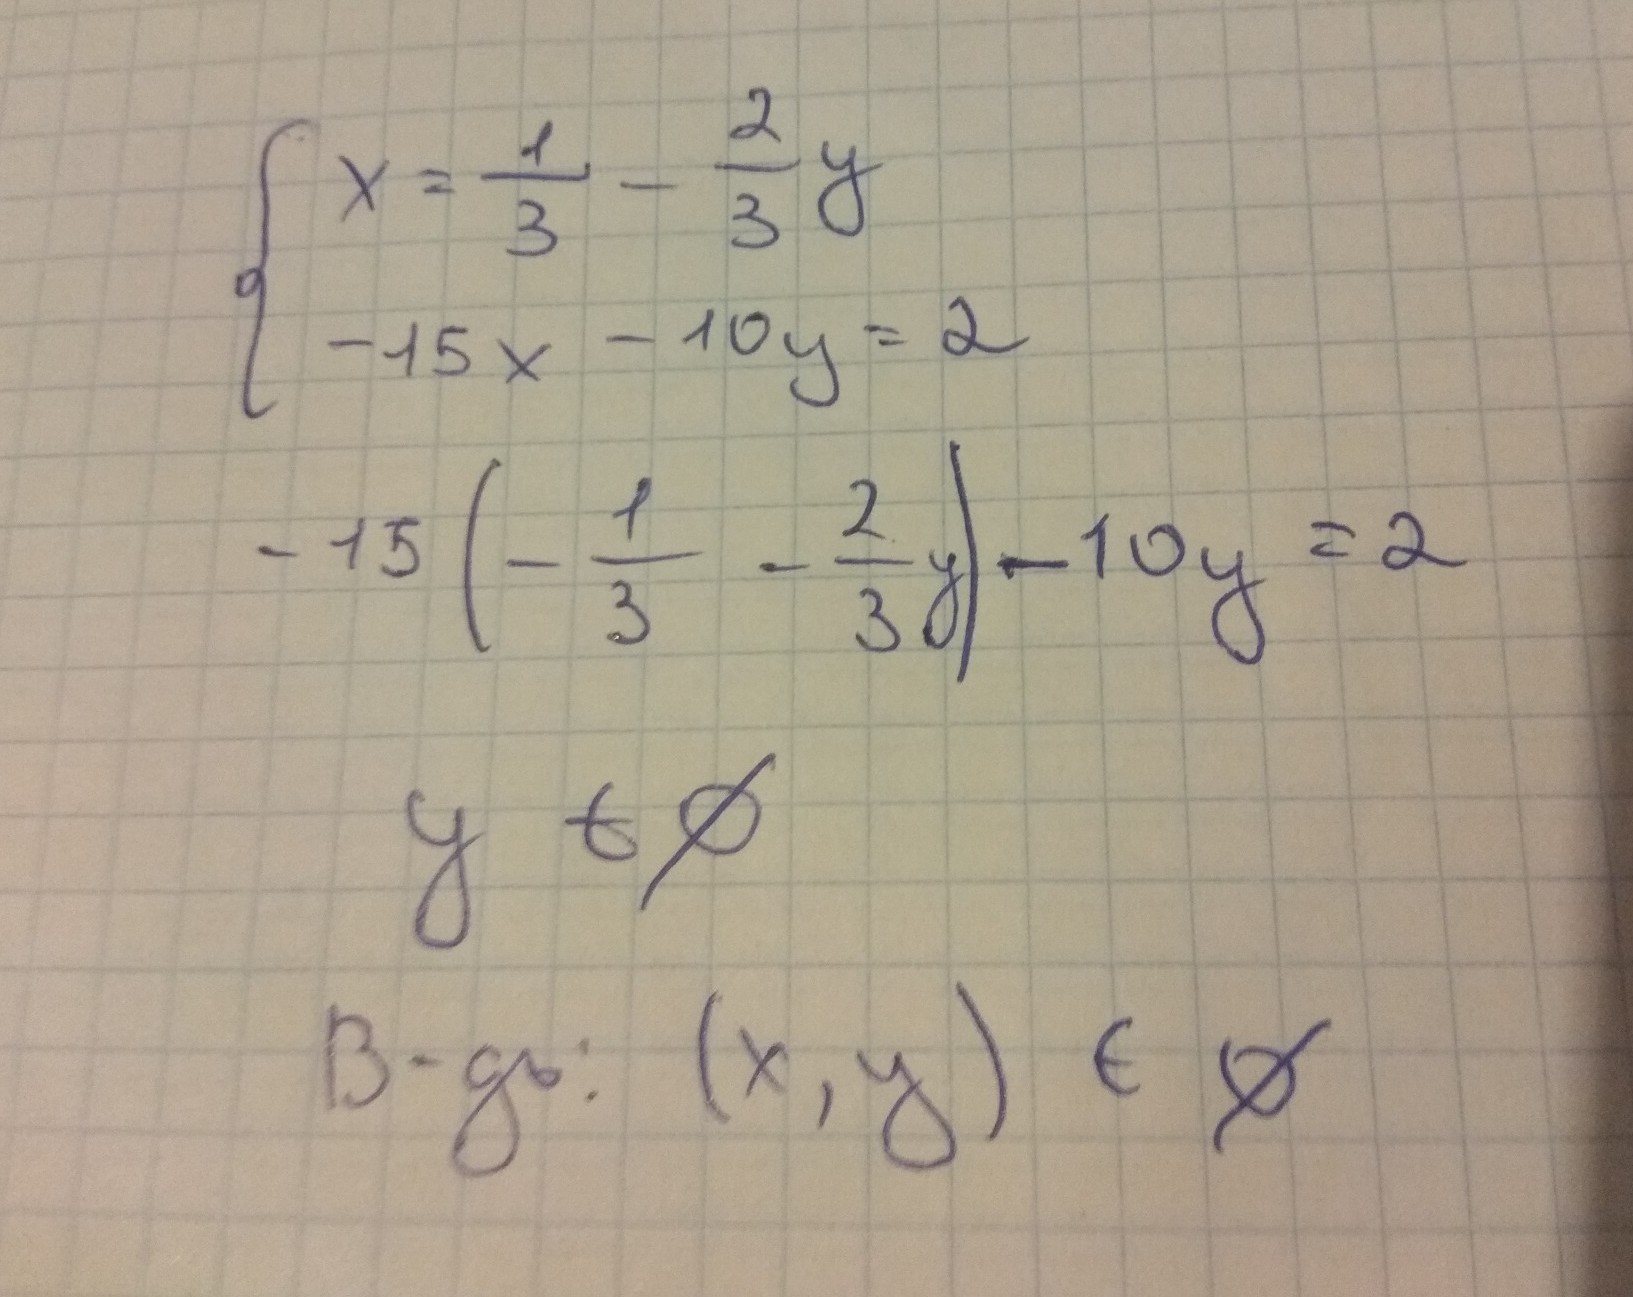 { x = 1/3 - 2/3 y
-15x - 10y = 2
-15 (- 1/3 - 2/3 y) - 10y = 2
y ∈ ∅
В-дь: (x, y) ∈ ∅